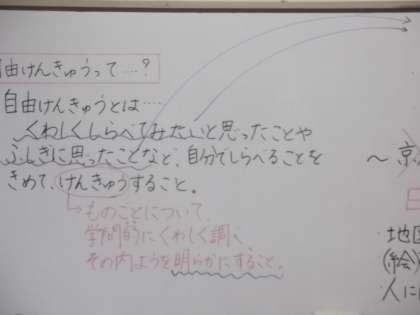 自由けんきゅうって…?
自由けんきゅうとは…
くわしくしらべてみたいと思ったことや
ふしぎに思ったことなど、自分でしらべることを
きめて、けんきゅうすること。
ものごとについて、
学問的にくわしく調べ、
その内ようを明らかにすること。
〜京
・地図
(絵)
・人に